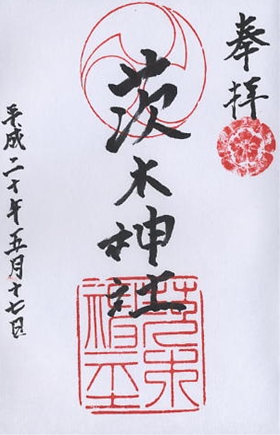 奉拝
茨木神社
平成二十年五月十七日
茨木神社